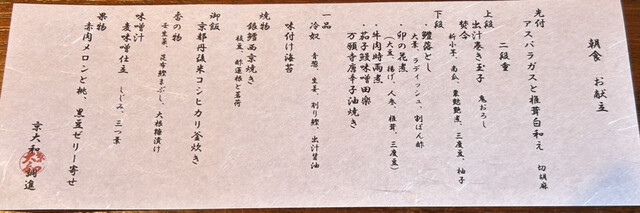 朝食 お献立
先付
アスパラガスと椎茸白和え 切胡麻
二段重
上段
出汁巻き玉子 鬼おろし
焚合
折小芋、南瓜、東麩煮、三度豆、柚子
下段
鱧落とし
大葉、ラディッシュ、割ぽん酢
・卯の花煮
(大豆、揚げ、人参、椎茸、三度豆)
・牛肉時雨煮
・茄子鰻味噌田楽
・万願寺唐辛子油焼き
一品
冷奴 青葱、生姜、削り鰹、出汁醤油
味付け海苔
焼物
銀鱈西京焼き
枝豆、酢蓮根と茗荷
御飯
京都丹後米コシヒカリ釜炊き
香の物
壬生菜、昆布鰹まぶし、大根糠漬け
味噌汁
麦味噌仕立 しじみ、三つ葉
果物
赤肉メロンと桃、黒豆ゼリー寄せ
京大和 調進